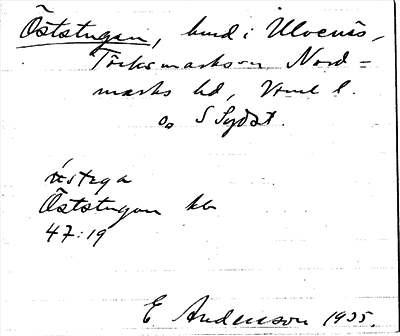 Öststugan, hmd i Ulvenäs,
Töcksmarks sn Nord=
marks hd, Vrml l.
o S Sydöst.
östega
Öststugan kb
47:19
E Andersson 1935.